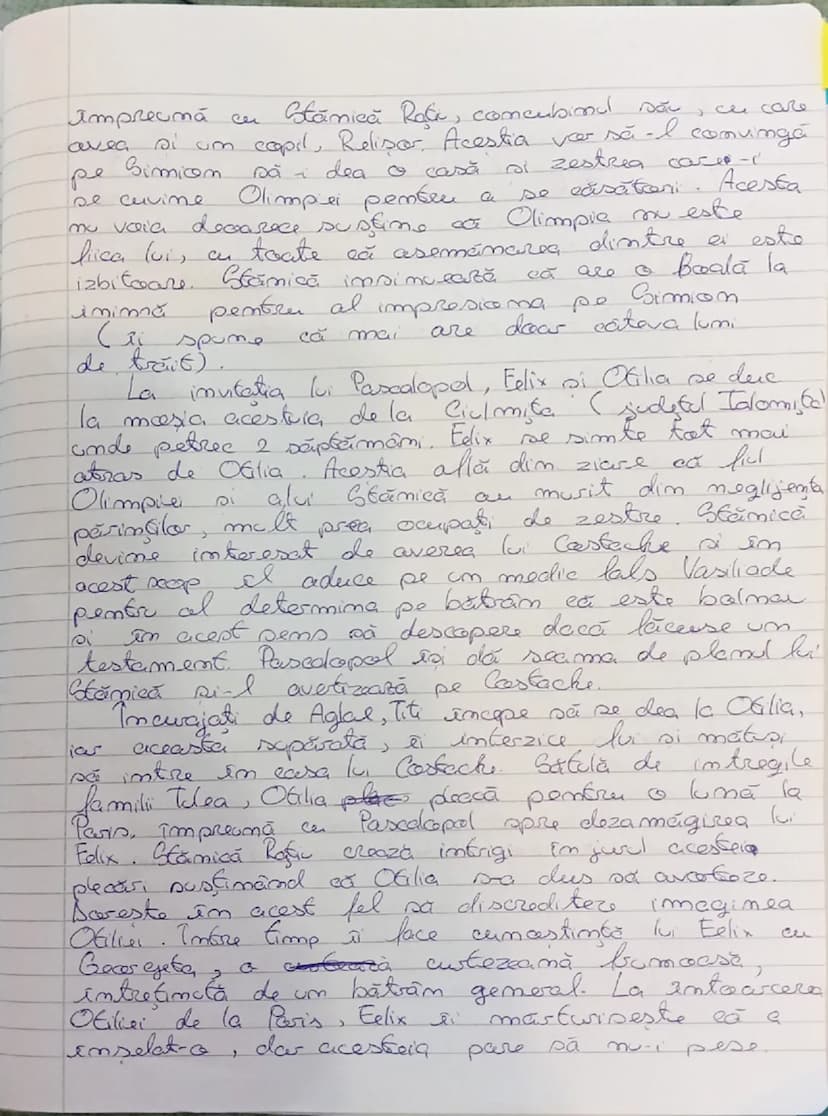 împreună cu Stănică Rațiu, concubinul său, cu care
avea și un copil, Relișor. Aceștia vor să-l convingă
pe Simion să-i dea o casă și zestrea care-i
se cuvine Olimpiei pentru a se căsători. Acesta
nu voia deoarece susține că Olimpia nu este
fiica lui, cu toate că asemănarea dintre ei este
izbitoare. Stănică insinuează că are o boală la
inimnă pentru al impresiona pe Simion
(îi spune că mai are doar câteva luni
de trăit).
La invitația lui Pascalopol, Felix și Otilia se duc
la moșia acestuia de la Ciulnița (județul Ialomița)
unde petrec 2 săptămâni. Felix se simte tot mai
atras de Otilia. Aceștia află din ziare că fiul
Olimpiei și alui Stănică au murit din neglijența
părinților, mult prea ocupați de zestre. Stănică
devine interesat de averea lui Costache și în
acest scop îl aduce pe un medic fals Vasiliade
pentru al determina pe bătrân că este bolnav
și în acest sens să descopere dacă făcuse un
testament. Pascalopol își dă seama de planul lui
Stănică și-l avertizează pe Costache.
Încurajați de Aglae, Titi începe să se dea la Otilia,
iar aceasta supărată, îi interzice lui și mătuși
să intre în casa lui Costache. Sătulă de intregile
familii Tulea, Otilia pleacă pentru o lună la
Paris, împreună cu Pascalopol spre dezamăgirea lui
Felix. Stănică Rațiu crează intrigi în jurul acesteia
plecări susținând că Otilia s-a dus să avorteze.
Dorește în acest fel să discrediteze imaginea
Otiliei. Între timp îi face cunoștință lui Felix cu
Georgeta, o curtezeană frumoasă,
întreținută de un bătrân general. La întoarcerea
Otiliei de la Paris, Felix îi mărturisește că a
înșelat-o, dar acesteia pare să nu-i pese.